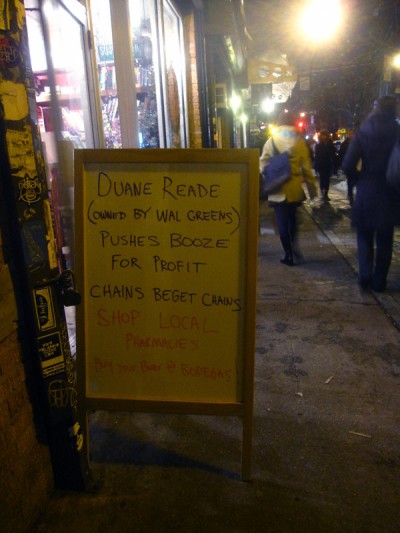 DUANE READE
(OWNED BY WAL GREENS)
PUSHES BOOZE
FOR PROFIT
CHAINS BEGET CHAINS
SHOP LOCAL
PHARMACIES
BUY YOUR BEER @ BODEGAS